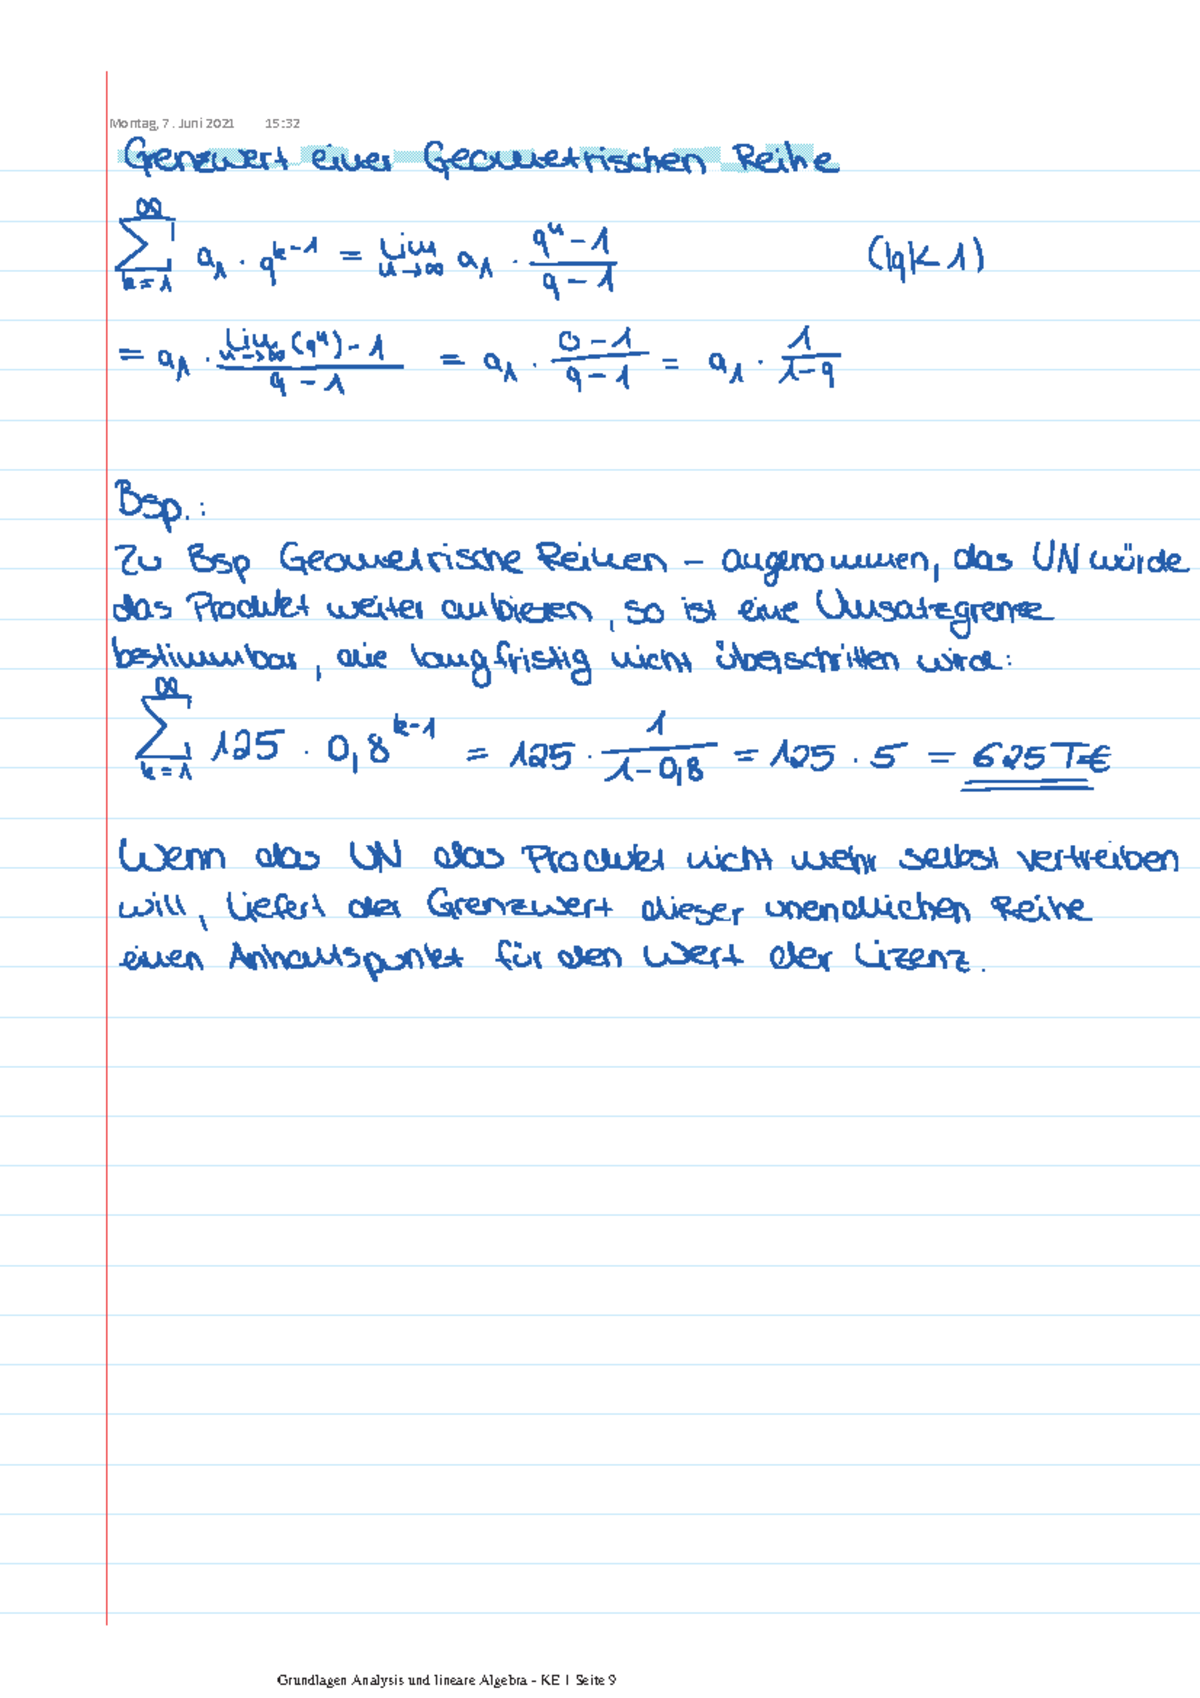 Montag, 7. Juni 2021 15:32
Grenzwert einer Geometrischen Reihe
∞ ∑ k=1 a₁ · q^(k-1) = lim n→∞ a₁ · (qⁿ - 1)/(q - 1) (|q|<1)
= a₁ · (lim n→∞ (qⁿ) - 1)/(q - 1) = a₁ · (0 - 1)/(q - 1) = a₁ · 1/(1-q)
Bsp.:
Zu Bsp Geometrische Reihen – angenommen, das UN würde
das Produkt weiter anbieten, so ist eine Umsatzgrenze
bestimmbar, die langfristig nicht überschritten wird:
∞ ∑ k=1 125 · 0,8^(k-1) = 125 · 1/(1-0,8) = 125 · 5 = 625 T€
Wenn das UN das Produkt nicht mehr selbst vertreiben
will, liefert der Grenzwert dieser unendlichen Reihe
einen Anhaltspunkt für den Wert der Lizenz.
Grundlagen Analysis und lineare Algebra - KE 1 Seite 9